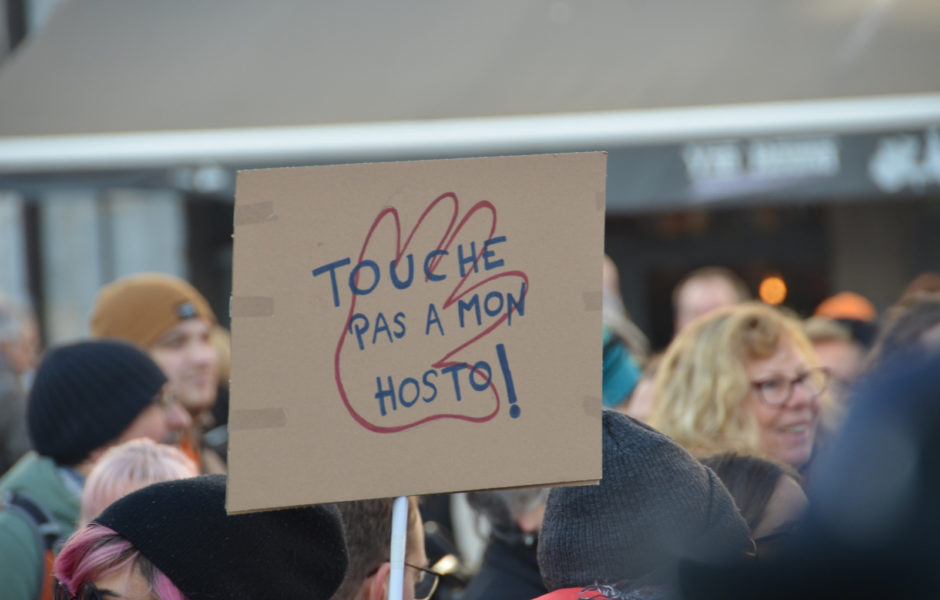 TOUCHE
PAS A MON
HOSTO!